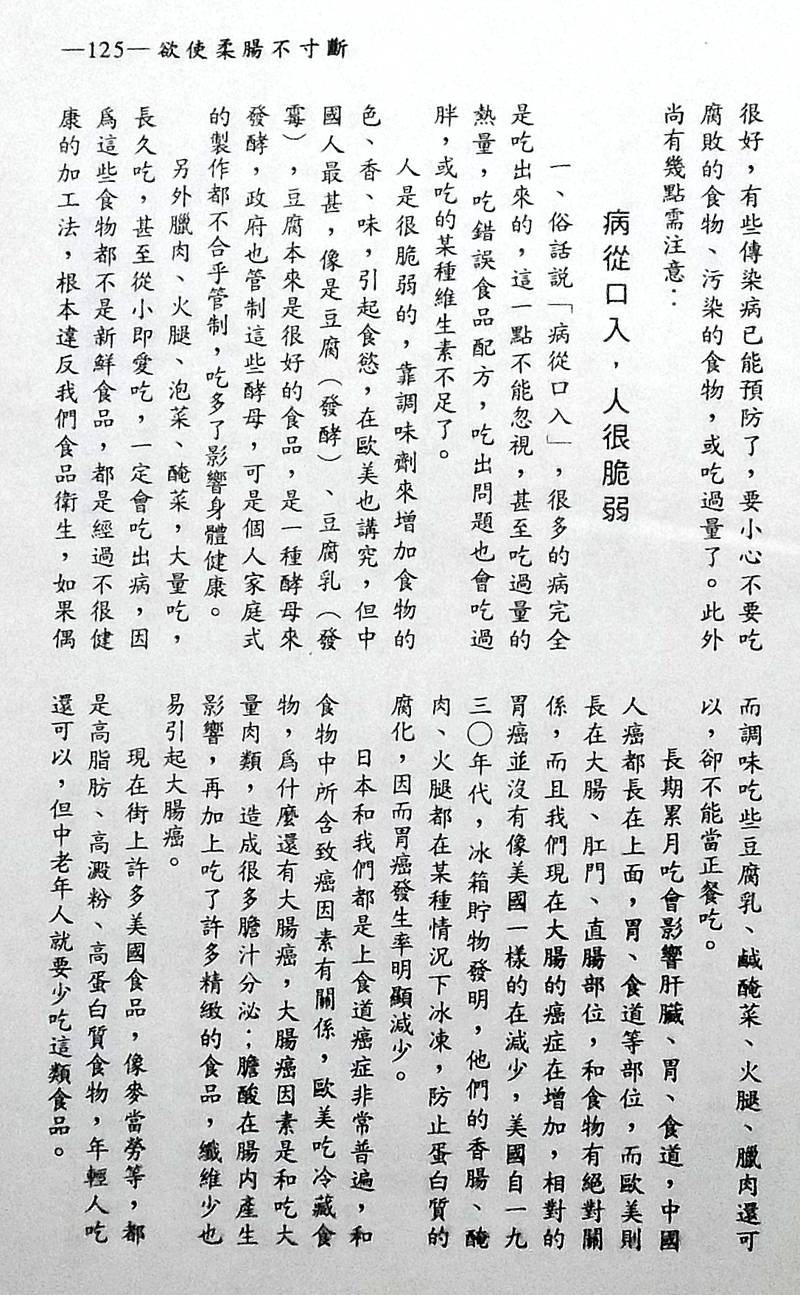 —125—欲使柔腸不寸斷
很好，有些傳染病已能預防了，要小心不要吃
腐敗的食物、污染的食物，或吃過量了。此外
尚有幾點需注意：
病從口入，人很脆弱
一、俗話説「病從口入」，很多的病完全
是吃出來的，這一點不能忽視，甚至吃過量的
熱量，吃錯誤食品配方，吃出問題也會吃過
胖，或吃的某種維生素不足了。
人是很脆弱的，靠調味劑來增加食物的
色、香、味，引起食慾，在歐美也講究，但中
國人最甚，像是豆腐（發酵）、豆腐乳（發
霉），豆腐本來是很好的食品，是一種酵母來
發酵，政府也管制這些酵母，可是個人家庭式
的製作都不合乎管制，吃多了影響身體健康。
另外臘肉、火腿、泡菜、醃菜，大量吃，
長久吃，甚至從小即愛吃，一定會吃出病，因
爲這些食物都不是新鮮食品，都是經過不很健
康的加工法，根本違反我們食品衛生，如果偶
而調味吃些豆腐乳、鹹醃菜、火腿、臘肉還可
以，卻不能當正餐吃。
長期累月吃會影響肝臟、胃、食道，中國
人癌都長在上面，胃、食道等部位，而歐美則
長在大腸、肛門、直腸部位，和食物有絕對關
係，而且我們現在大腸的癌症在增加，相對的
胃癌並沒有像美國一樣的在減少，美國自一九
三〇年代，冰箱貯物發明，他們的香腸、醃
肉、火腿都在某種情況下冰凍，防止蛋白質的
腐化，因而胃癌發生率明顯減少。
日本和我們都是上食道癌症非常普遍，和
食物中所含致癌因素有關係，歐美吃冷藏食
物，爲什麼還有大腸癌，大腸癌因素是和吃大
量肉類，造成很多膽汁分泌；膽酸在腸內產生
影響，再加上吃了許多精緻的食品，纖維少也
易引起大腸癌。
現在街上許多美國食品，像麥當勞等，都
是高脂肪、高澱粉、高蛋白質食物，年輕人吃
還可以，但中老年人就要少吃這類食品。